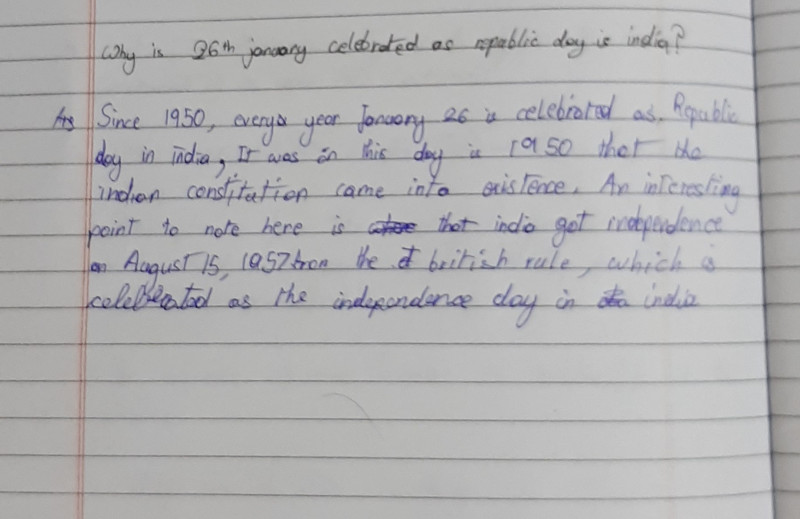 Why is 26th janoary celebrated as repablic day is india?
Ans Since 1950, everys year Janoary 26 is celebrated as. Repablic
day in india, It was on this day is 1950 that the
indian constitution came into existence. An interesting
point to note here is that india got independence
on August 15, 1957 from the british rule, which is
celebrated as the independence day in india